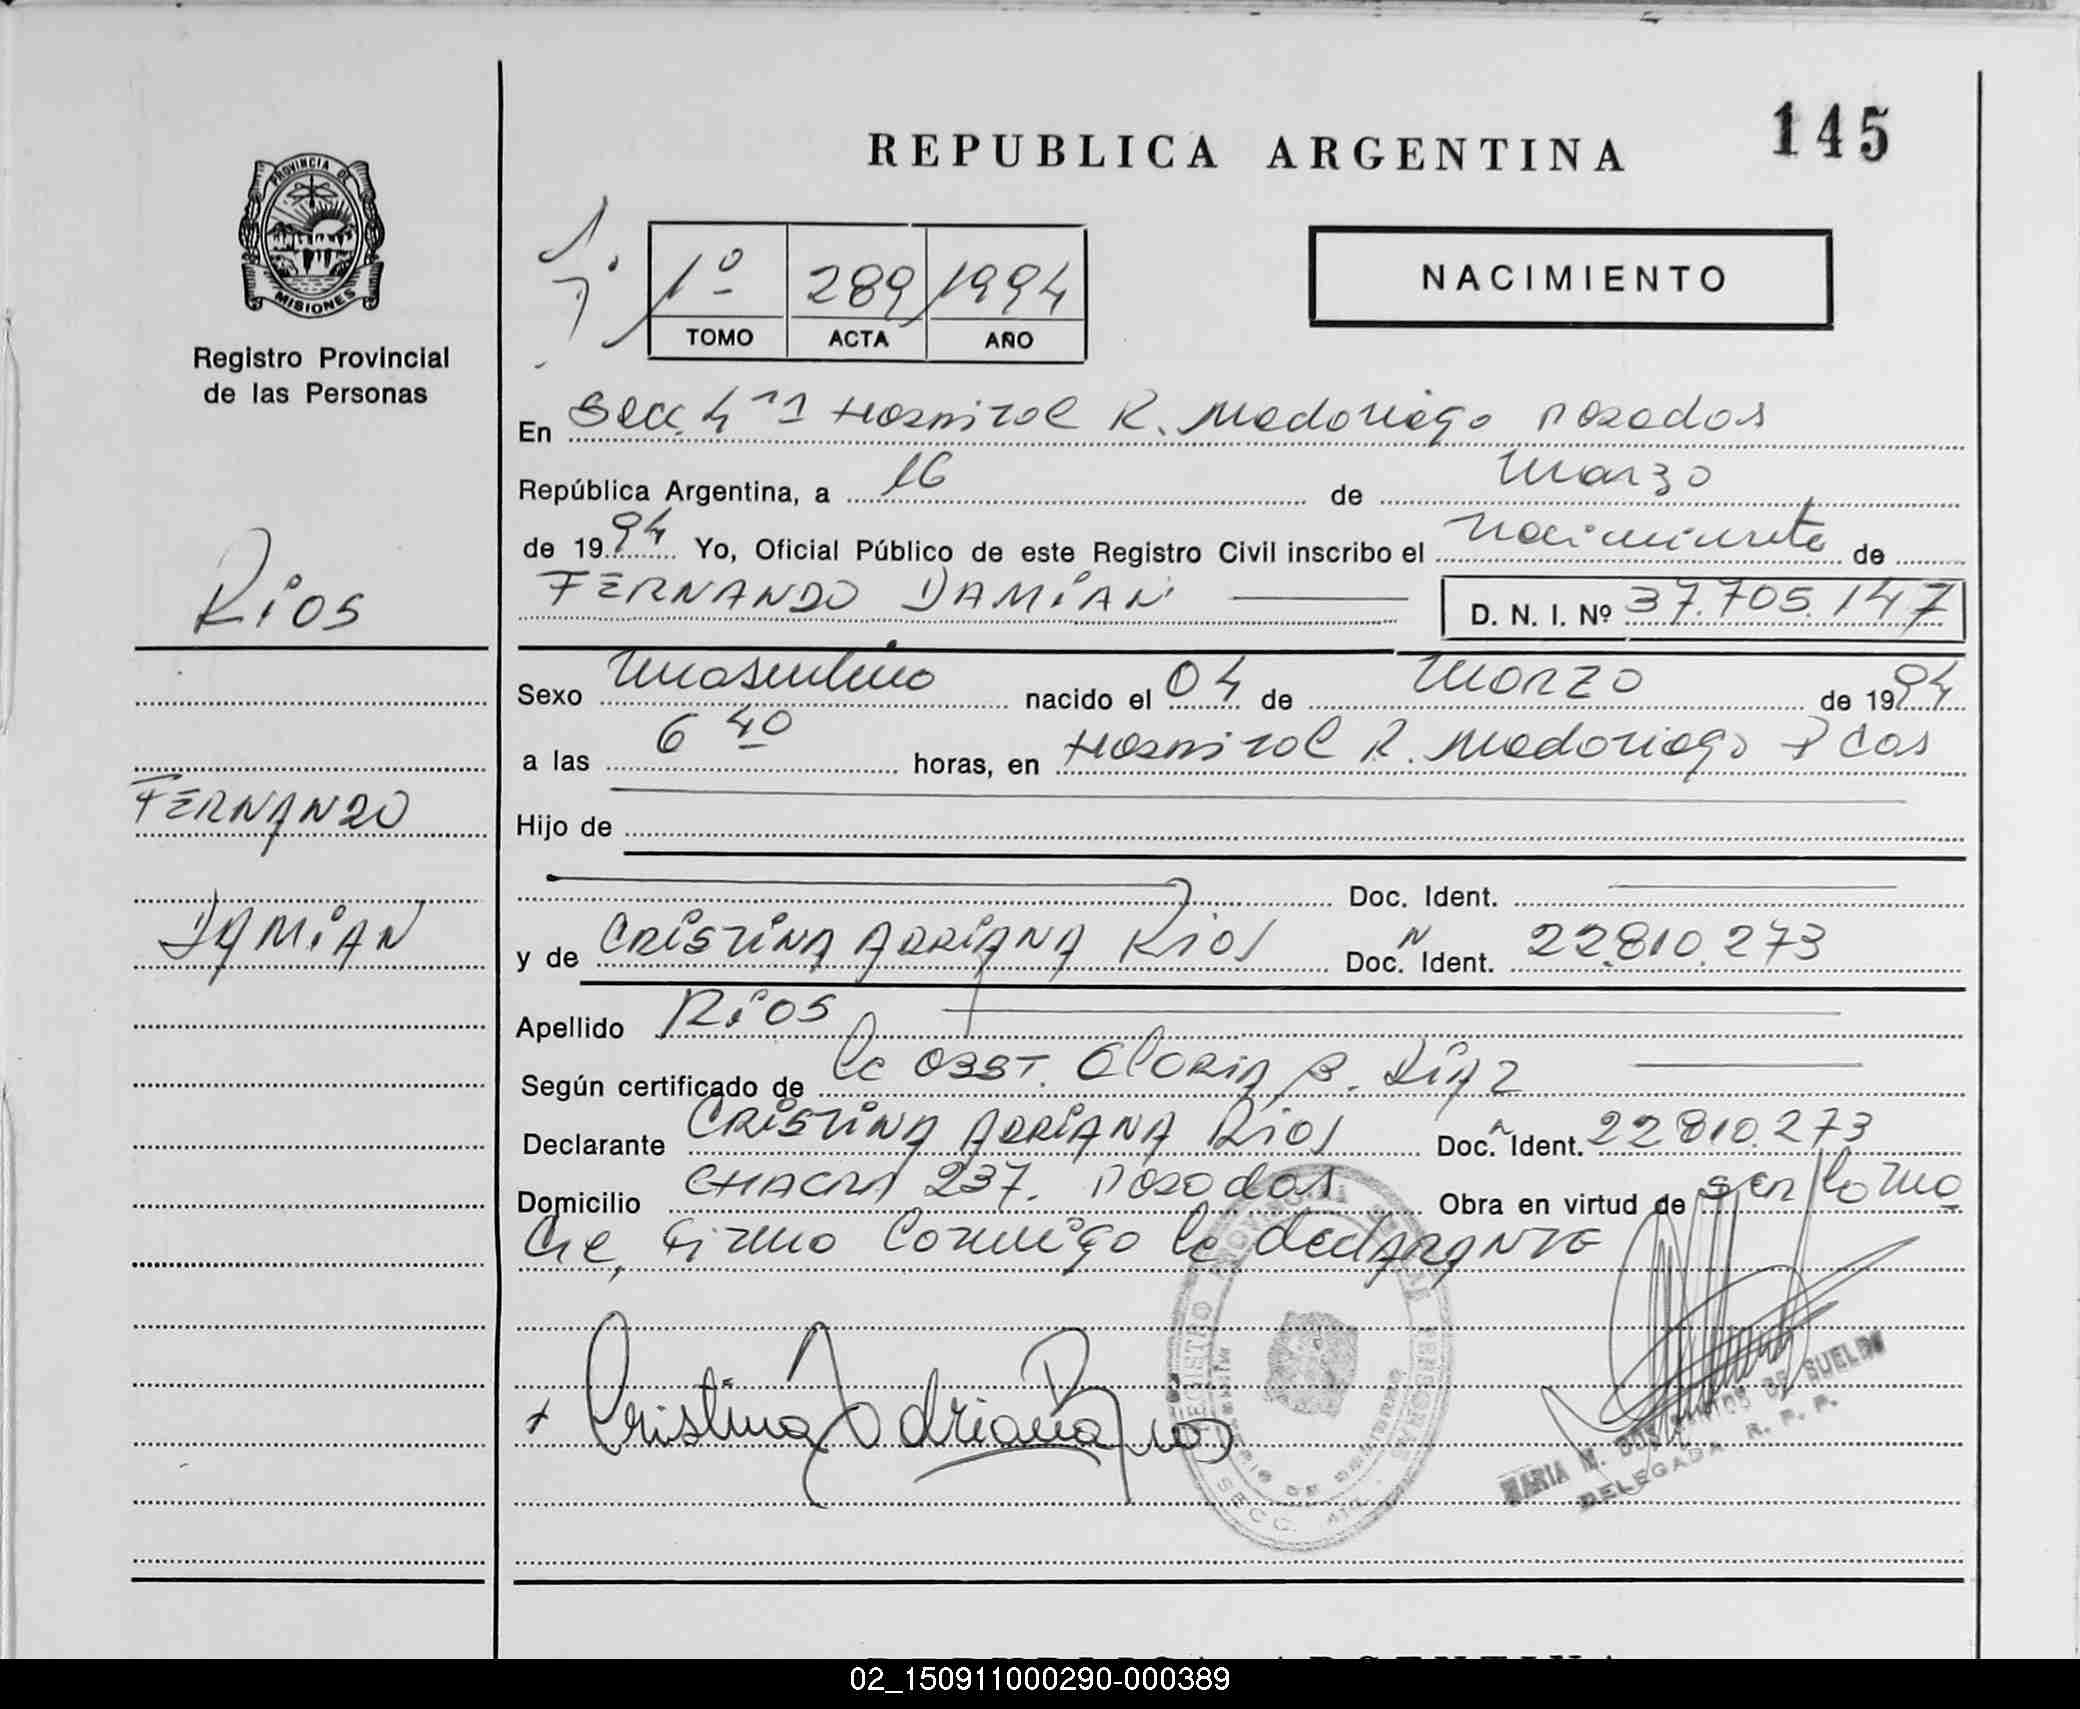 REPUBLICA ARGENTINA
145
PROVINCIA DE
MISIONES
Registro Provincial
de las Personas
1º 289 1994
TOMO ACTA AÑO
NACIMIENTO
En Secc. 4ª 1 Hospital R. Madariaga Posadas
República Argentina, a 16 de Marzo
de 1994 Yo, Oficial Público de este Registro Civil inscribo el nacimiento de
FERNANDO DAMIAN D. N. I. Nº 37.705.147
Rios
Sexo masculino nacido el 04 de Marzo de 1994
a las 6 40 horas, en Hospital R. Madariaga Pdas
FERNANDO
Hijo de
Doc. Ident.
DAMIAN
y de CRISTINA ADRIANA Rios Doc. N Ident. 22.810.273
Apellido Rios
Según certificado de la OBST. GLORIA B. DIAZ
Declarante CRISTINA ADRIANA Rios Doc. Ident. 22 810.273
Domicilio CHACRA 237. Posadas Obra en virtud de ser la ma
dre, Firma Conmigo la declARANTE
Cristina Adriana Rios
MARIA M. DOS SANTOS DE SUELDO
DELEGADA R. P. P.
SECC.
REPUBLICA ARGENTINA
02_150911000290-000389